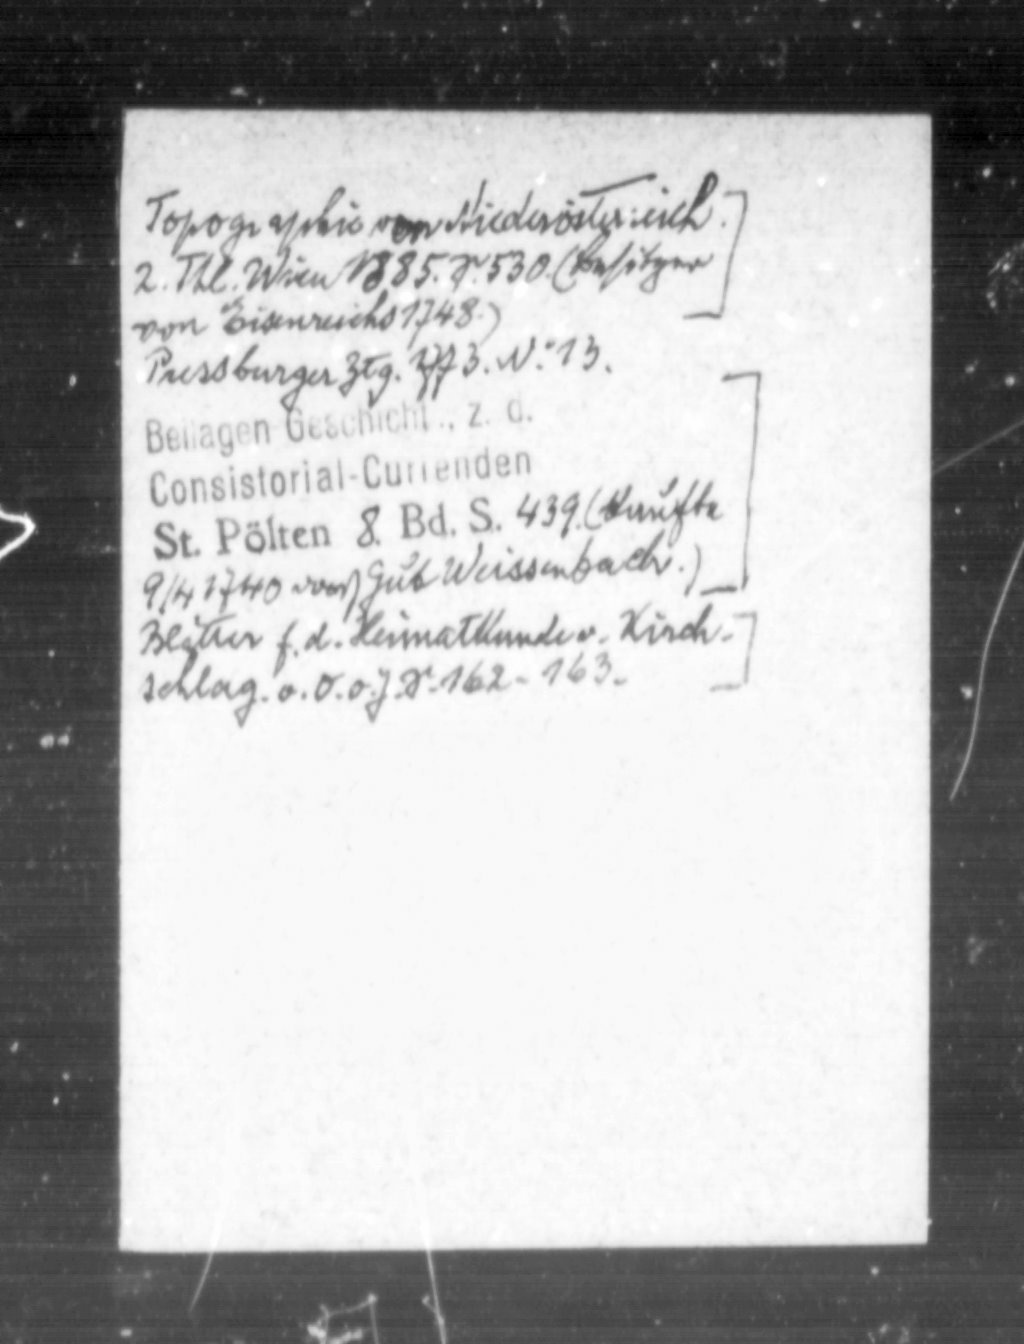 Topographie von Niederösterreich.
2. Thl. Wien 1885. S. 530 (Besitzer
von Eisenreichs 1748.)
Pressburger Ztg. 1773. N.° 13.
Beilagen Geschichtl., z. d.
Consistorial-Currenden
St. Pölten 8. Bd. S. 439. (Kaufte
9/4 1740 das Gut Weissenbach.)
Blätter f. d. Heimatkunde v. Kirch-
schlag. o. O. o. J. S. 162 - 163.